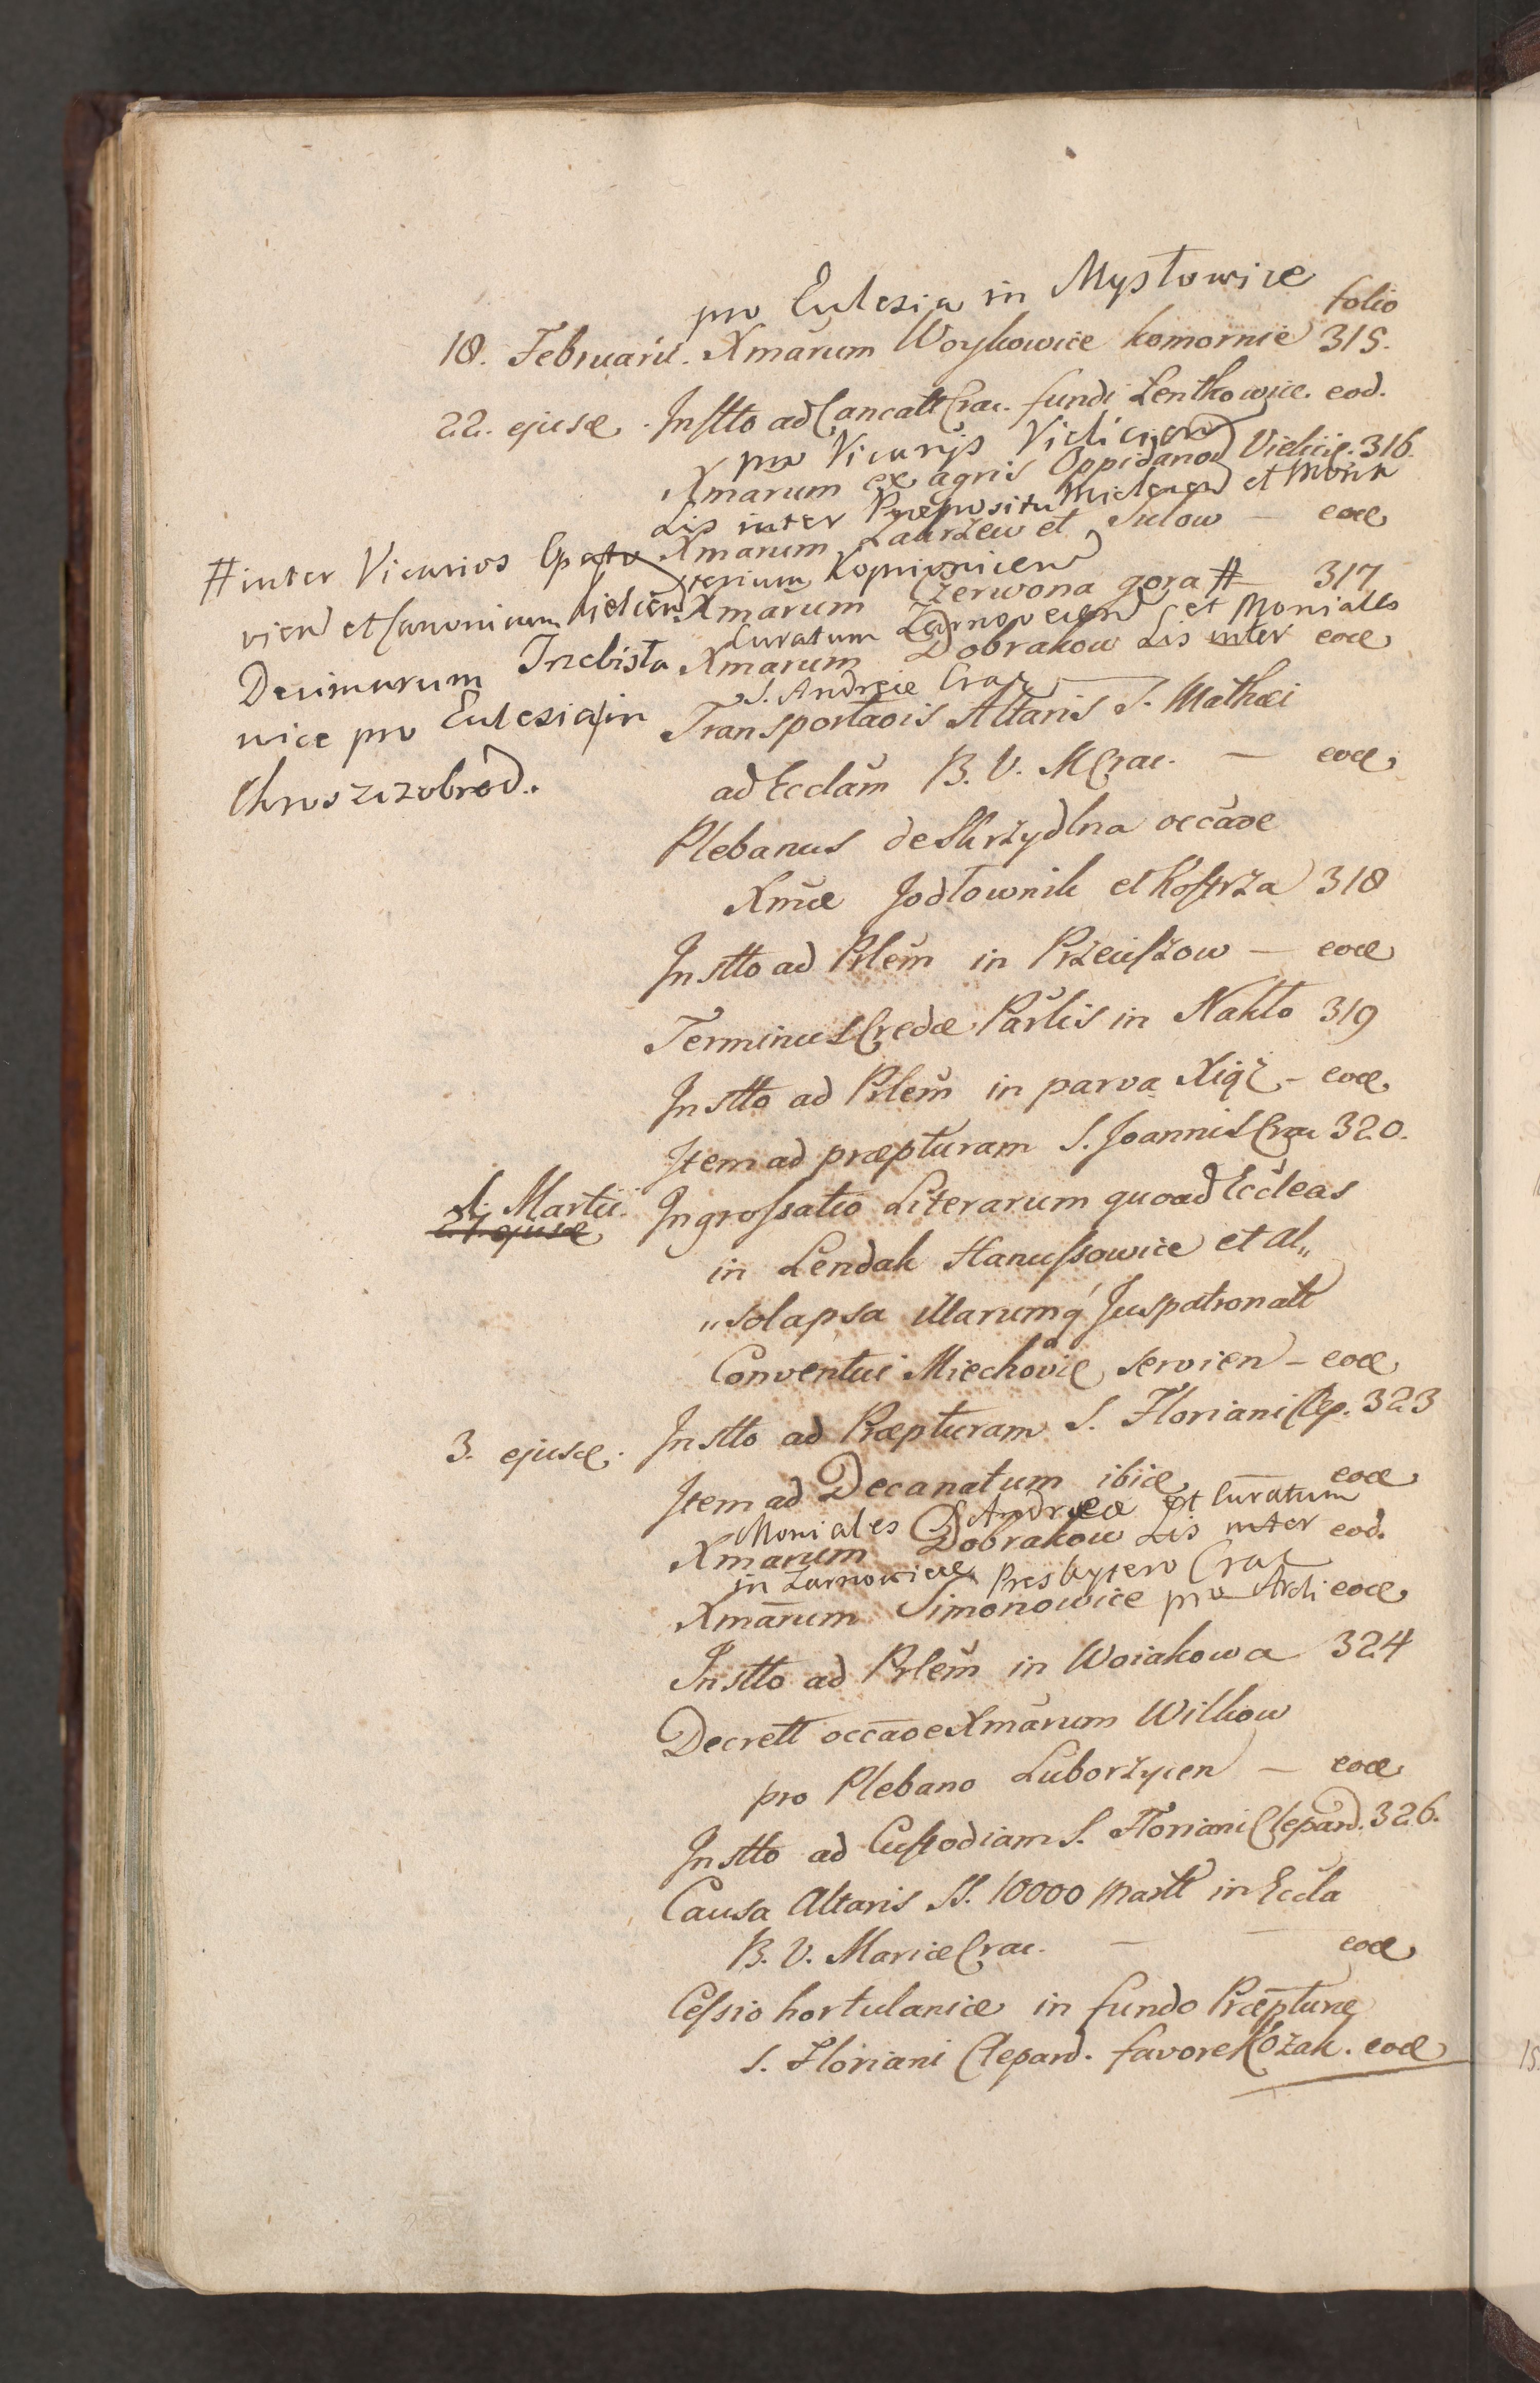 pro Eclesia in Mysłowice
folio
18. Februarii. Xmarum Woykowice komornie 315.
22. ejusd. Instto ad Cancatt Crac. fundi Lentkowice. eod.
pro Vicarijs Vieliciens
Xmarum ex agris Oppidanor Vieliciē. 316.
Lis inter Præpositū Miclecen et Mona
Xmarum Zaurżew et Sulow — eod
sterium Koprivnicen
Xmarum Czerwona gora # 317
#inter Vicarios Opato
vien et Canonicum Kielcien
Decimarum Inclista
vice pro Eclesia in
Chroszczobrod.
Curatum Żarnovecen et Moniales
Xmarum Dobrakow Lis inter eod
S. Andreæ Crac
Transportaois Altaris S. Mathæi
ad Ecclam B. V. M Crac. — eod
Plebanus de Skrżydlna occaoe
Xmæ Jodłownik et Kostrża 318
Instto ad Plem in Przeuszow — eod
Terminus Credæ Parlis in Nakło 319
Instto ad Plem in parva Xiąż — eod
Item ad præpturam S. Joannis Crac 320.
1. Martii. Ingrossatio Literarum quoad Eccleas
27. ejusd
in Lendak Hanussowice et al„
„solapsa illarumq́ Juspatronatt
Conventui Miechovie servien — eod
3. ejusd. Instto ad Præpturam S. Floriani Clep. 323
Item ad Decanatum ibid eod
Moniales S Andreæ et Curatum
Xmarum Dobrakow Lis inter eod.
in Żarnowiece Presbytero Crac
Xmarum Simonowice pro Archi eod
Instto ad Plem in Woiakowa 324
Decrett occaoe Xmarum Wilkow
pro Plebano Luborżycen — eod
Instto ad Custodiam S. Floriani Clepard. 326.
Causa Altaris SS. 10000 Martt in Eccla
B. V. Mariæ Crac. — — eod
Cessio hortulaniæ in fundo Præpturæ
S. Floriani Clepard. favore Kozak. eod